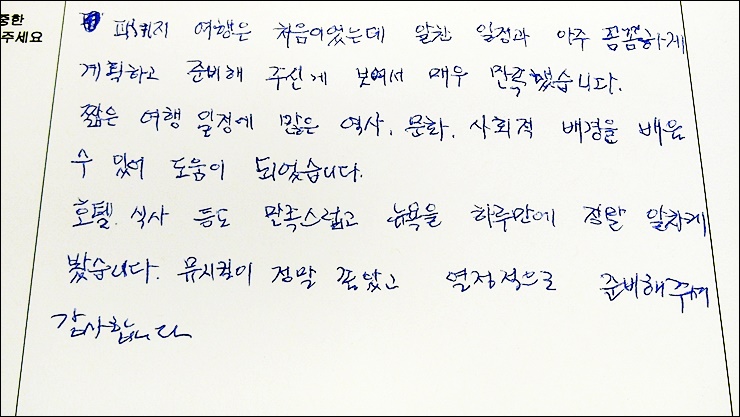 중한
주세요
패키지 여행은 처음이었는데 알찬 일정과 아주 꼼꼼하게
계획하고 준비해 주신게 보여서 매우 만족했습니다.
짧은 여행 일정에 많은 역사, 문화, 사회적 배경을 배울
수 있어 도움이 되었습니다.
호텔, 식사 등도 만족스럽고 뉴욕을 하루만에 정말 알차게
봤습니다. 뮤지컬이 정말 좋았고 열정적으로 준비해주셔
감사합니다